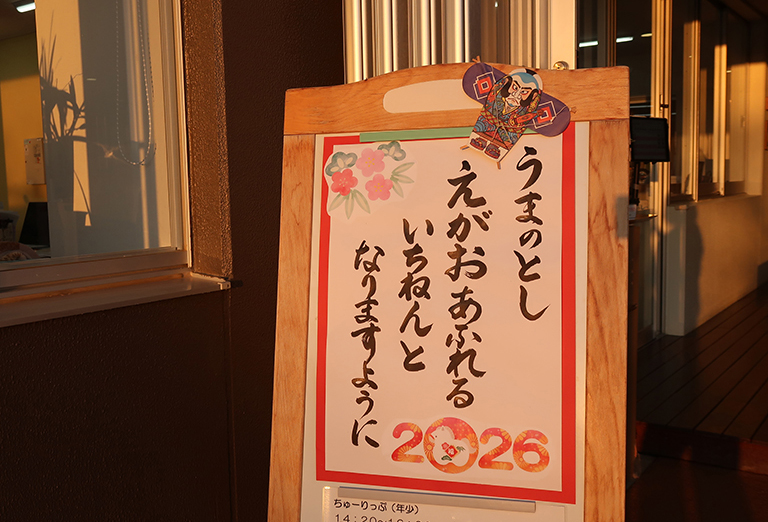 うまのとし
えがおあふれる
いちねんと
なりますように
2026
ちゅーりっぷ（年少）